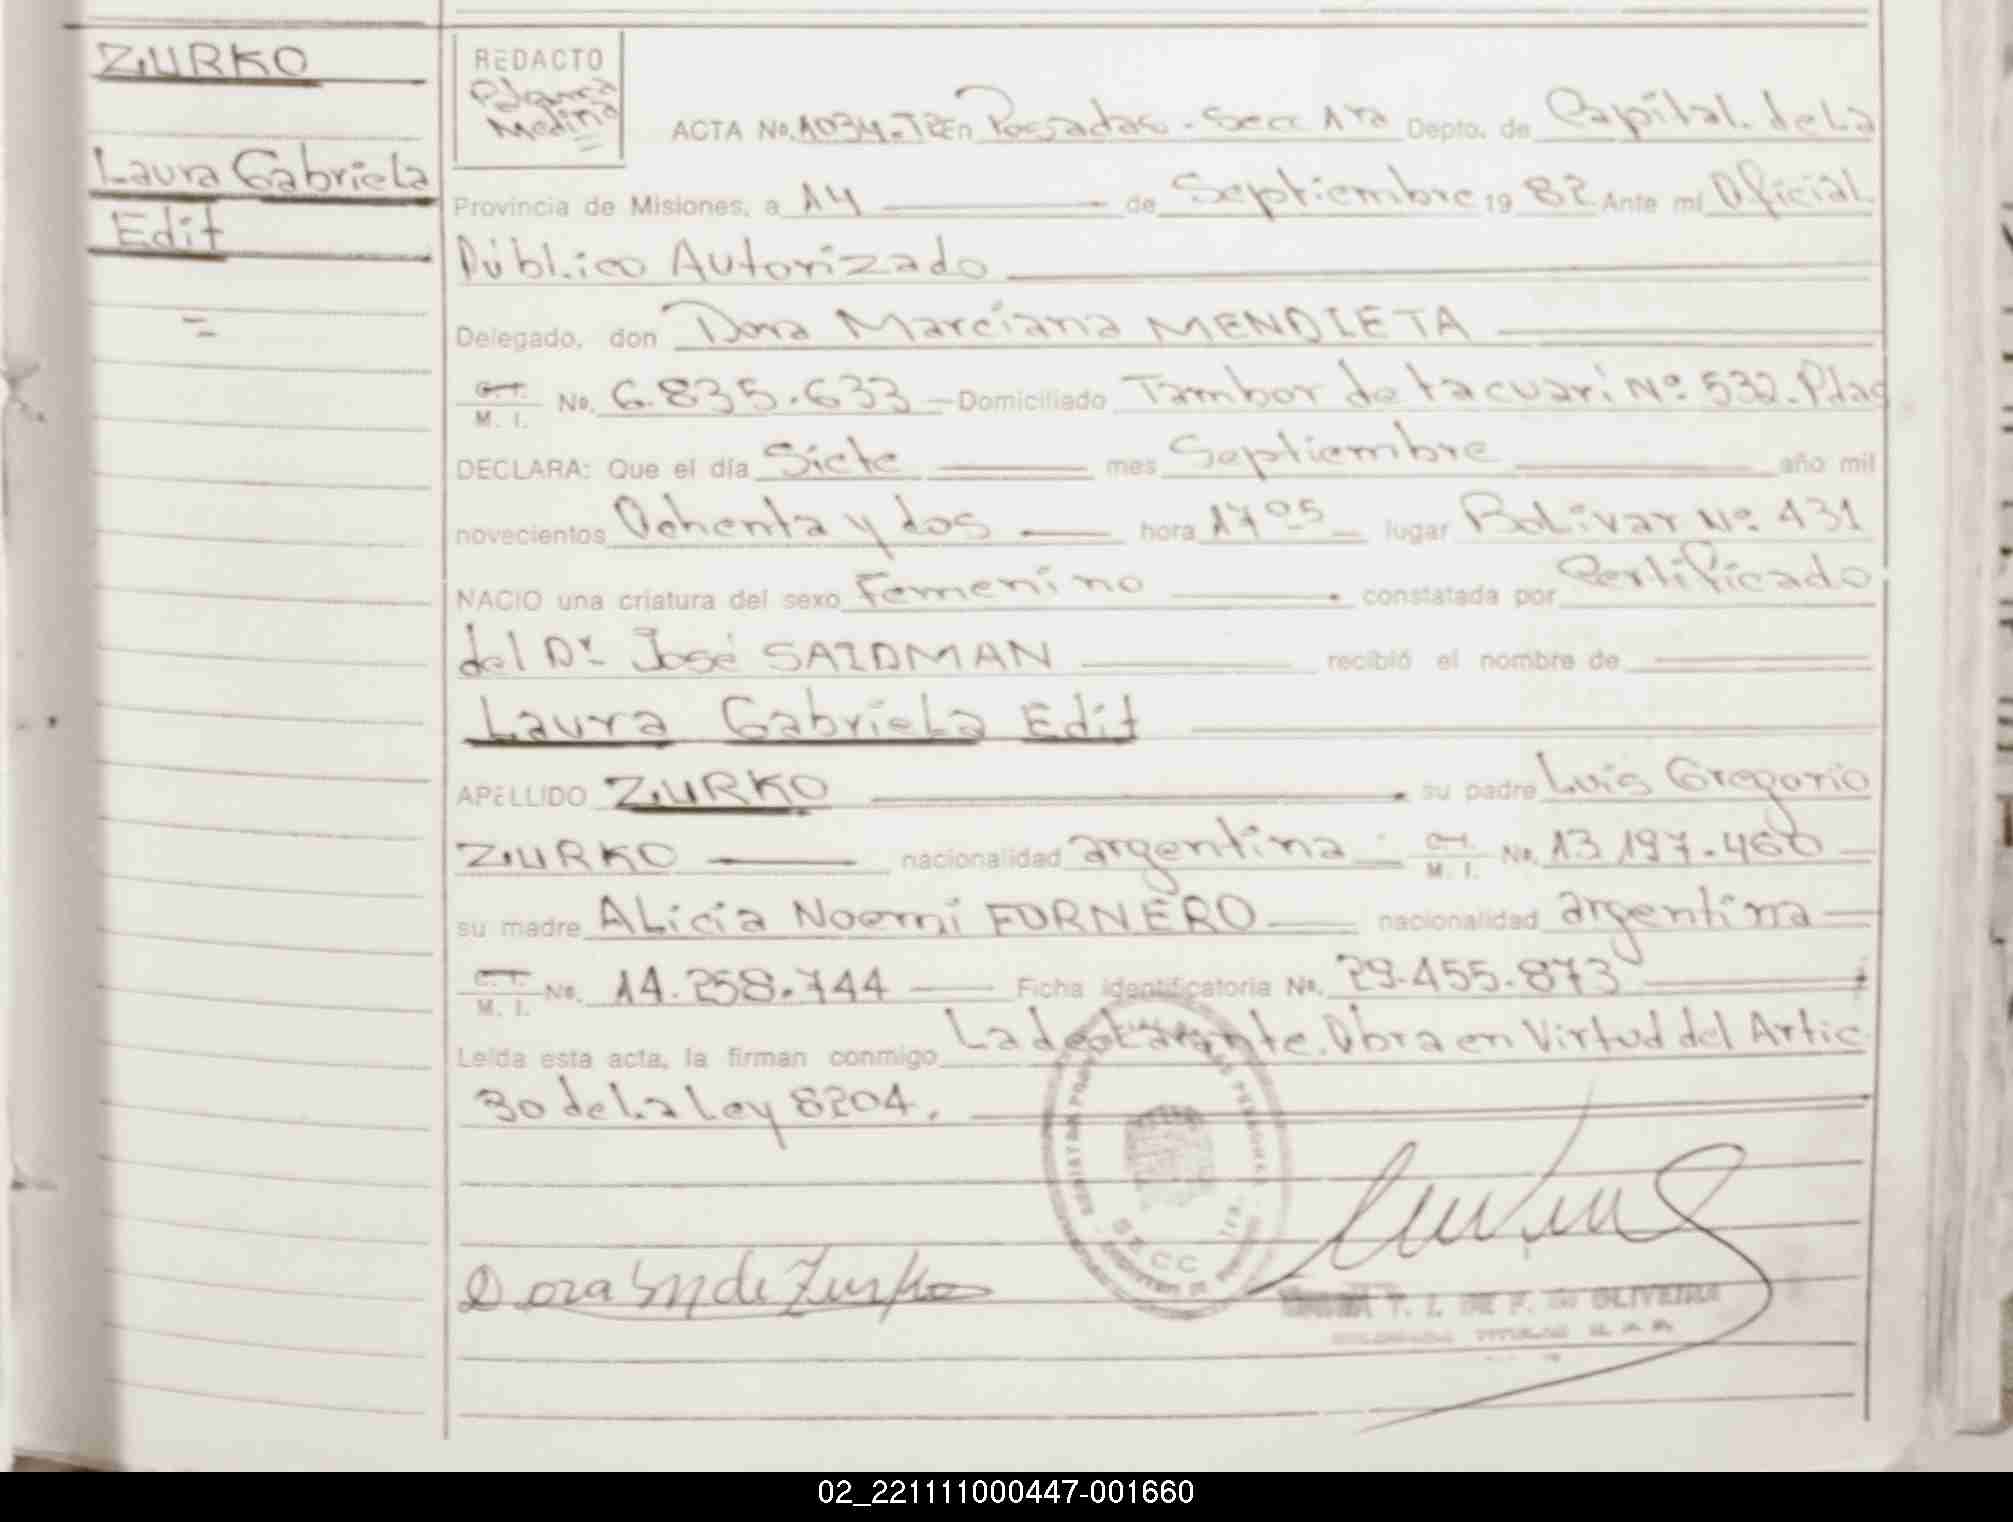 ZURKO
Laura Gabriela
Edit
=
REDACTO
Medina
ACTA No. 1034. T2 En Posadas. Secc 1ra Depto. de Capital. de La
Provincia de Misiones, a 14 de Septiembre 19 82 Ante mí Oficial
Público Autorizado
Delegado, don Dora Marciana MENDIETA
C.I. M. I. No. 6.835.633 — Domiciliado Tambor de tacuarí Nº 532. Pdas
DECLARA: Que el día Siete mes Septiembre año mil
novecientos Ochenta y dos hora 17 05 lugar Bolívar Nº 431
NACIO una criatura del sexo Femenino constatada por Certificado
del Dr. José SAIDMAN recibió el nombre de
Laura Gabriela Edit
APELLIDO ZURKO su padre Luis Gregorio
ZURKO nacionalidad argentina C.I. M. I. No. 13.197.460
su madre Alicia Noemí FORNERO nacionalidad argentina
C.I. M. I. No. 14.258.744 Ficha identificatoria No. 29.455.873
Leída esta acta, la firman conmigo La declarante. Obra en Virtud del Artic.
30 de La Ley 8204.
SECC 1ra.
Dora M de Zurko
T. I. DE F. DE OLIVEIRA
02_221111000447-001660